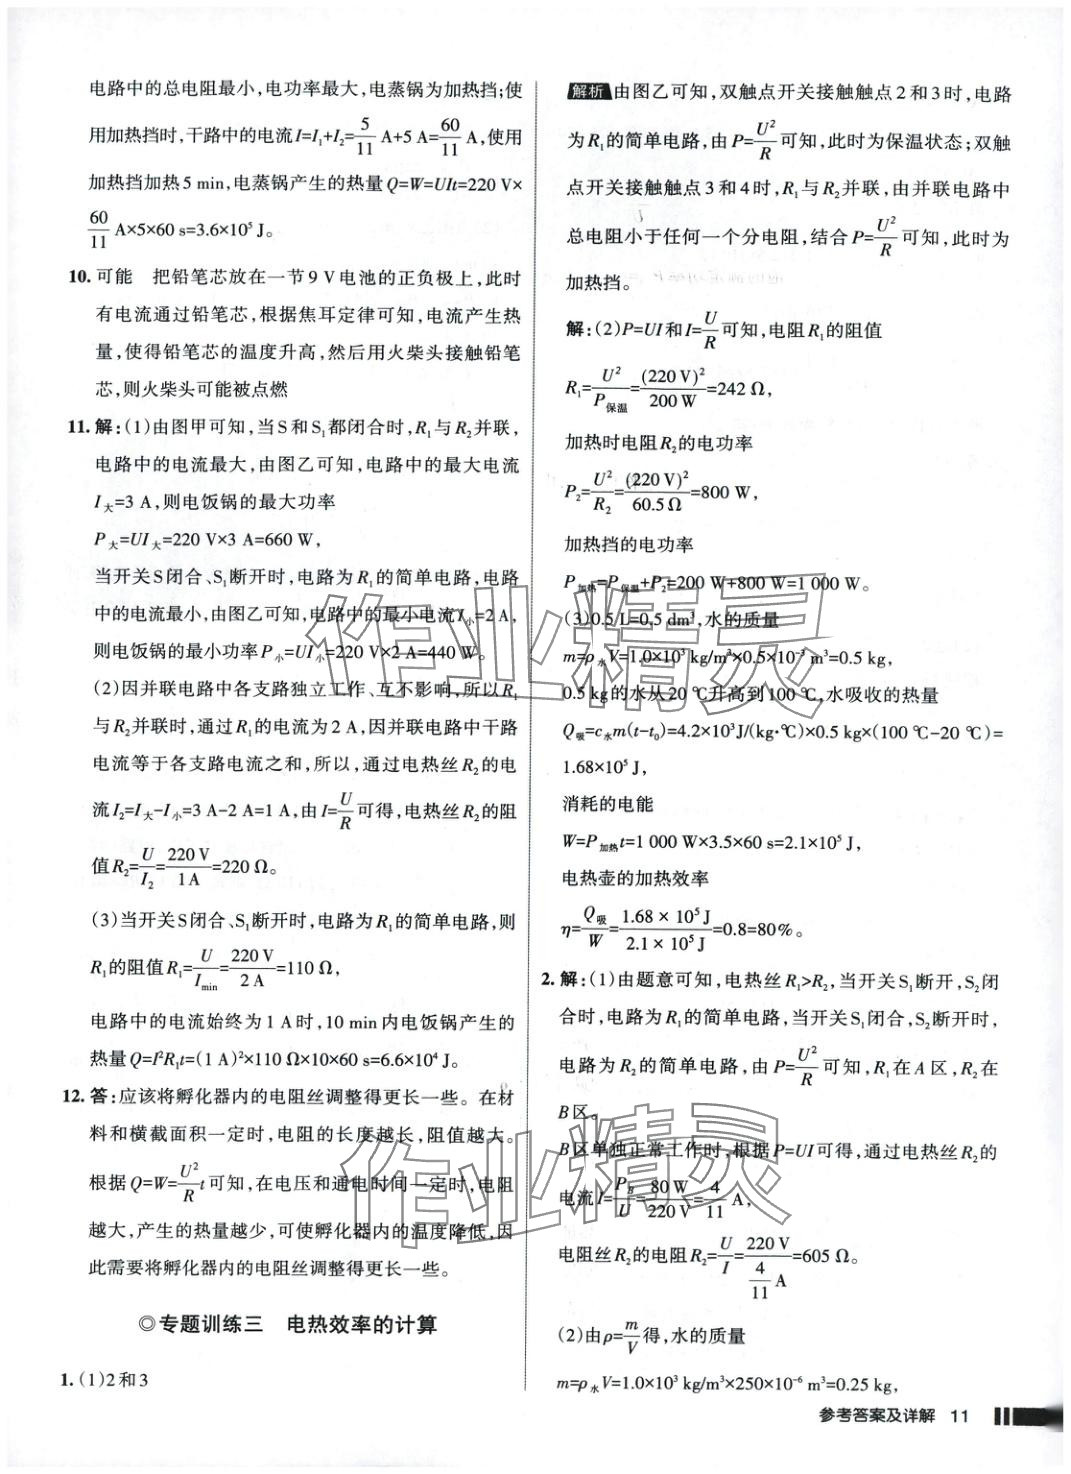 电路中的总电阻最小,电功率最大,电蒸锅为加热挡;使
用加热挡时,干路中的电流I=I₁+I₂=5/11 A+5 A=60/11 A,使用
加热挡加热5 min,电蒸锅产生的热量Q=W=UIt=220 V×
60/11 A×5×60 s=3.6×10⁵ J。
10. 可能 把铅笔芯放在一节9 V电池的正负极上,此时
有电流通过铅笔芯,根据焦耳定律可知,电流产生热
量,使得铅笔芯的温度升高,然后用火柴头接触铅笔
芯,则火柴头可能被点燃
11. 解:(1)由图甲可知,当S和S₁都闭合时,R₁与R₂并联,
电路中的电流最大,由图乙可知,电路中的最大电流
I大=3 A,则电饭锅的最大功率
P大=UI大=220 V×3 A=660 W,
当开关S闭合、S₁断开时,电路为R₁的简单电路,电路
中的电流最小,由图乙可知,电路中的最小电流I小=2 A,
则电饭锅的最小功率P小=UI小=220 V×2 A=440 W。
(2)因并联电路中各支路独立工作、互不影响,所以R₁
与R₂并联时,通过R₁的电流为2 A,因并联电路中干路
电流等于各支路电流之和,所以,通过电热丝R₂的电
流I₂=I大-I小=3 A-2 A=1 A,由I=U/R可得,电热丝R₂的阻
值R₂=U/I₂=220 V/1 A=220 Ω。
(3)当开关S闭合、S₁断开时,电路为R₁的简单电路,则
R₁的阻值R₁=U/Imin=220 V/2 A=110 Ω,
电路中的电流始终为1 A时,10 min内电饭锅产生的
热量Q=I²R₁t=(1 A)²×110 Ω×10×60 s=6.6×10⁴ J。
12. 答:应该将孵化器内的电阻丝调整得更长一些。在材
料和横截面积一定时,电阻的长度越长,阻值越大。
根据Q=W=U²/R t可知,在电压和通电时间一定时,电阻
越大,产生的热量越少,可使孵化器内的温度降低,因
此需要将孵化器内的电阻丝调整得更长一些。
◎专题训练三 电热效率的计算
1. (1)2和3
解析 由图乙可知,双触点开关接触触点2和3时,电路
为R₁的简单电路,由P=U²/R可知,此时为保温状态;双触
点开关接触触点3和4时,R₁与R₂并联,由并联电路中
总电阻小于任何一个分电阻,结合P=U²/R可知,此时为
加热挡。
解:(2)P=UI和I=U/R可知,电阻R₁的阻值
R₁=U²/P保温=(220 V)²/200 W=242 Ω,
加热时电阻R₂的电功率
P₂=U²/R₂=(220 V)²/60.5 Ω=800 W,
加热挡的电功率
P加热=P保温+P₂=200 W+800 W=1 000 W。
(3)0.5 L=0.5 dm³,水的质量
m=ρ水V=1.0×10³ kg/m³×0.5×10⁻³ m³=0.5 kg,
0.5 kg的水从20 ℃升高到100 ℃,水吸收的热量
Q吸=c水m(t-t₀)=4.2×10³J/(kg·℃)×0.5 kg×(100 ℃-20 ℃)=
1.68×10⁵ J,
消耗的电能
W=P加热t=1 000 W×3.5×60 s=2.1×10⁵ J,
电热壶的加热效率
η=Q吸/W=1.68 × 10⁵ J/2.1 × 10⁵ J=0.8=80%。
2. 解:(1)由题意可知,电热丝R₁>R₂,当开关S₁断开,S₂闭
合时,电路为R₁的简单电路,当开关S₁闭合,S₂断开时,
电路为R₂的简单电路,由P=U²/R可知,R₁在A区,R₂在
B区。
B区单独正常工作时,根据P=UI可得,通过电热丝R₂的
电流I=PB/U=80 W/220 V=4/11 A,
电阻丝R₂的电阻R₂=U/I=220 V/(4/11 A)=605 Ω。
(2)由ρ=m/V得,水的质量
m=ρ水V=1.0×10³ kg/m³×250×10⁻⁶ m³=0.25 kg,
参考答案及详解 11
作业精灵
作业精灵